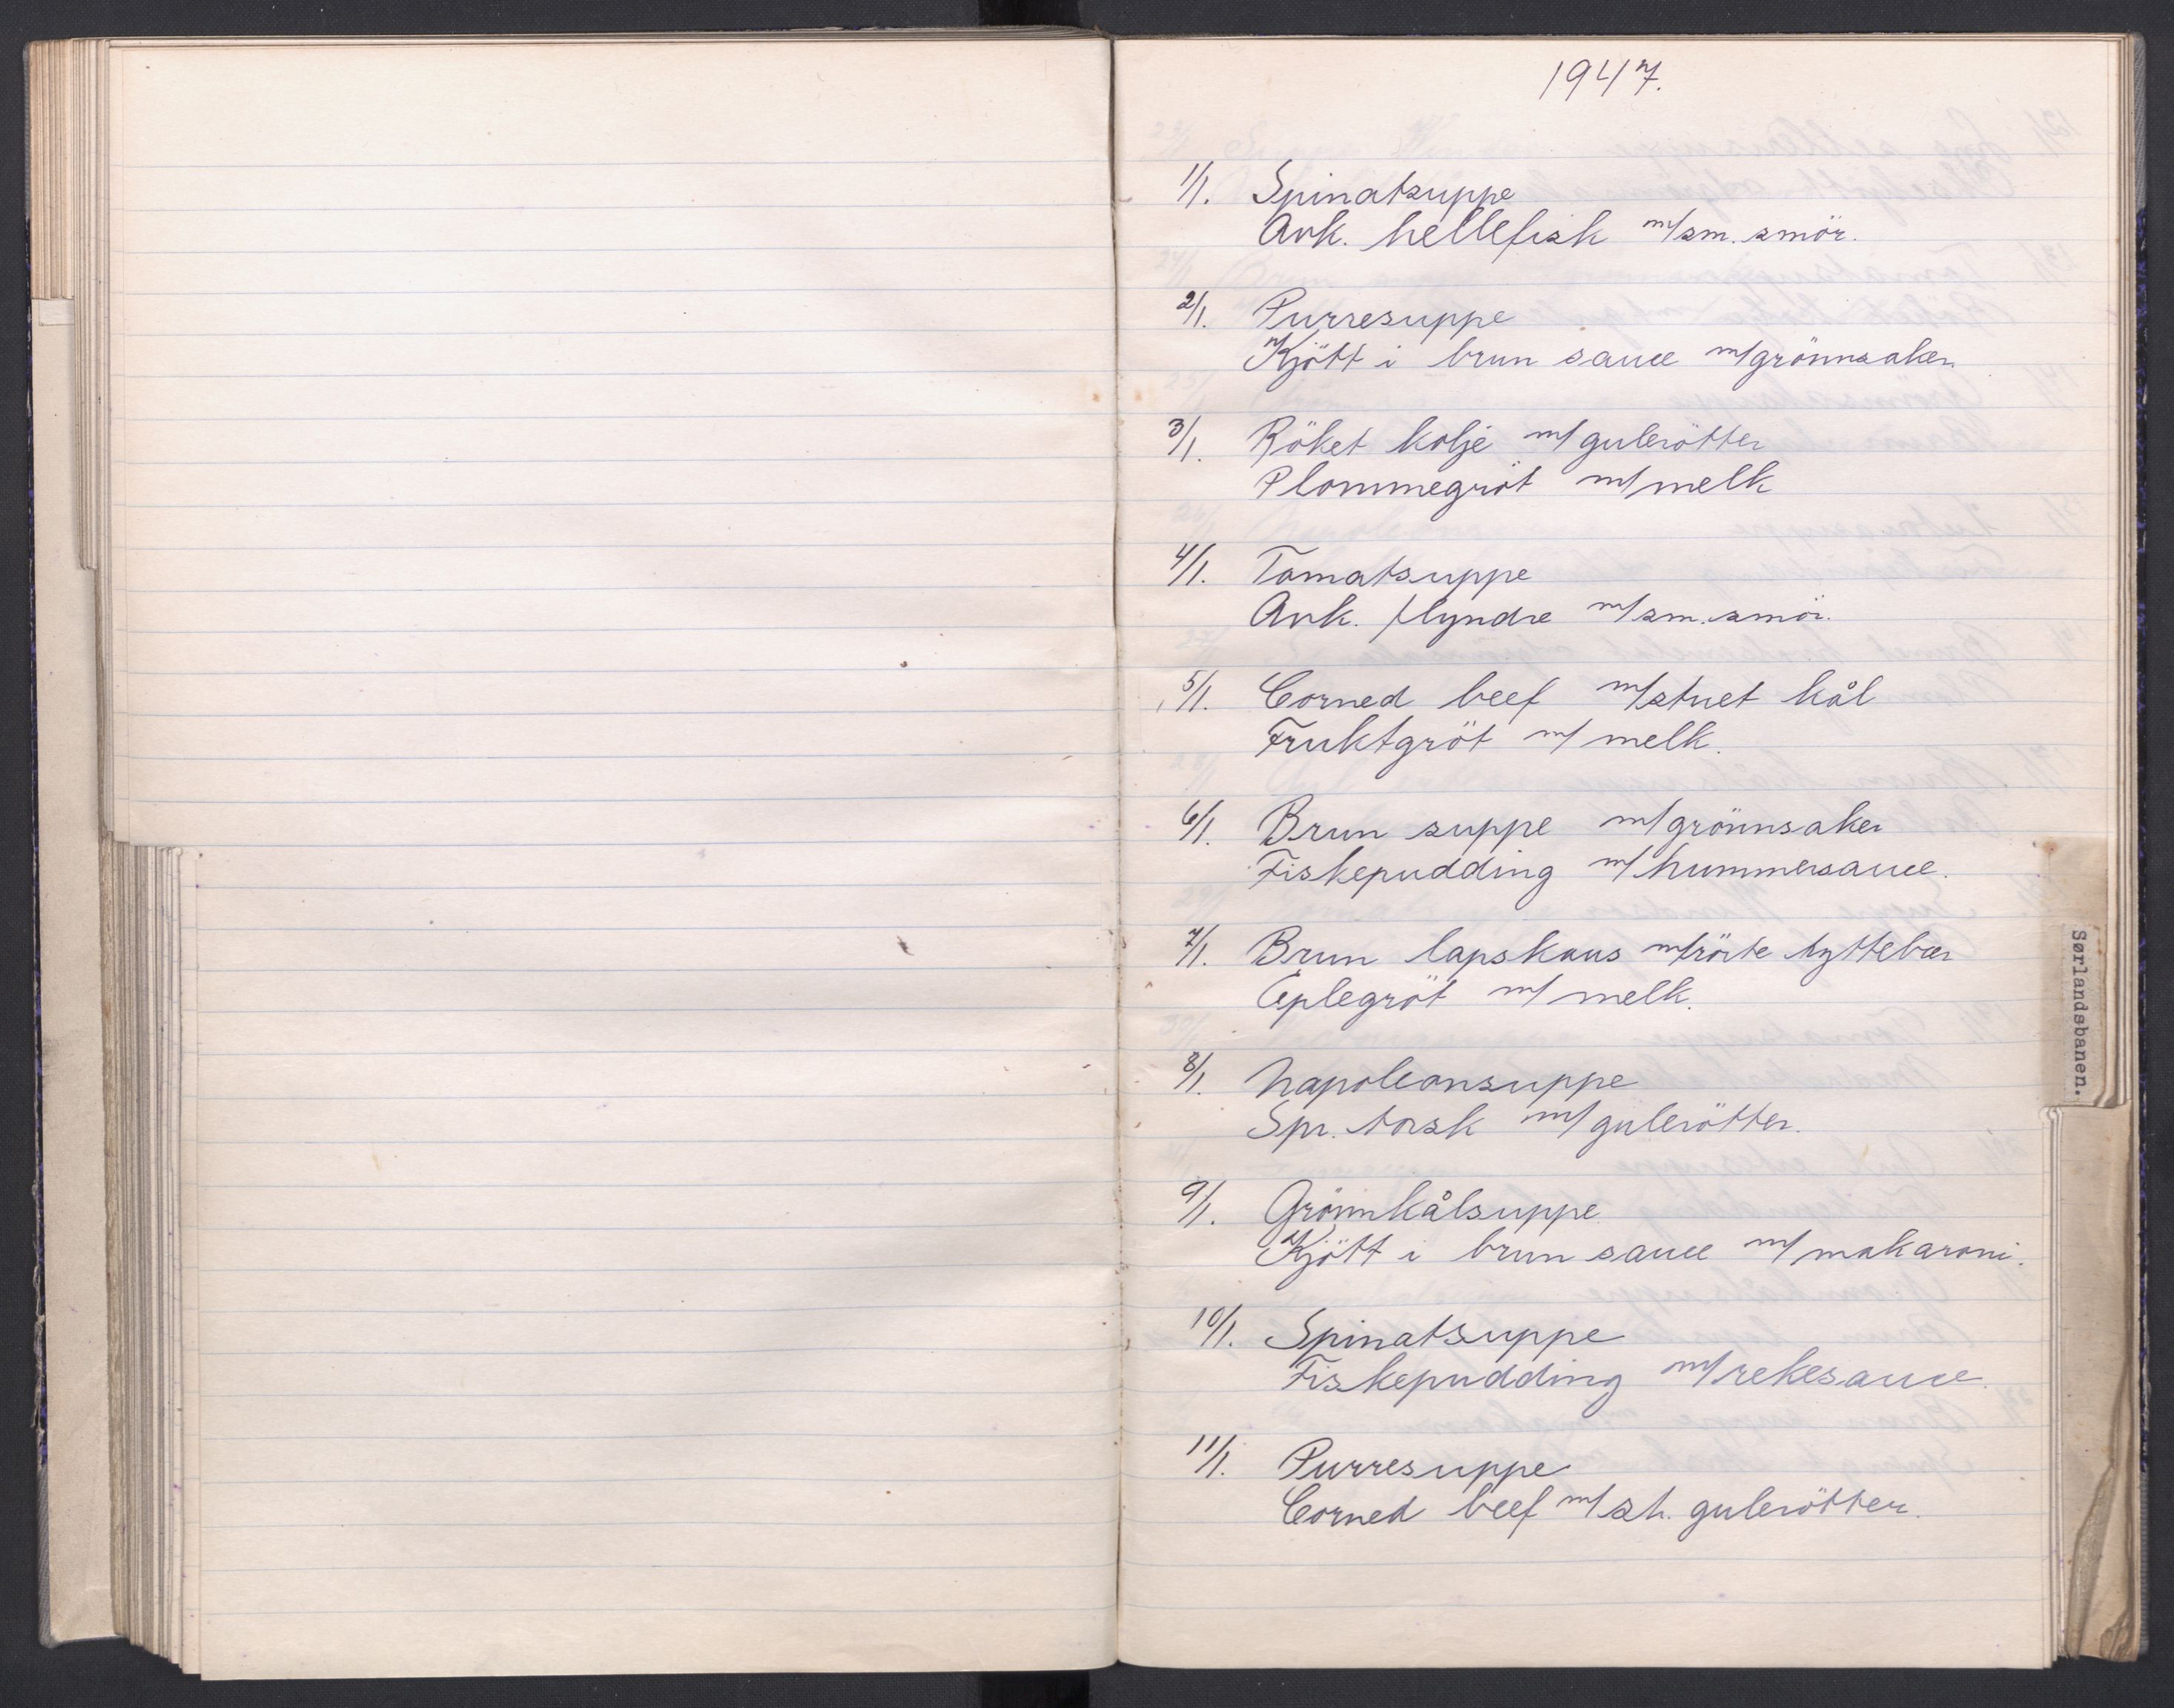 1947.
1/1. Spinatsuppe
Avk. hellefisk m/sm. smör.
2/1. Purresuppe
Kjött i brun sauce m/grönnsaker
3/1. Röket kolje m/ gulerötter
Plommegröt m/ melk
4/1. Tomatsuppe
Avk. flyndre m/sm. smör.
5/1. Corned beef m/stuet kål
Fruktgröt m/ melk.
6/1. Brun suppe m/grönnsaker
Fiskepudding m/ hummersauce.
7/1. Brun lapskaus m/rörte tyttebær
Eplegröt m/ melk.
8/1. Napoleonsuppe
Spr. torsk m/ gulerötter.
9/1. Grönnkålsuppe
Kjött i brun sauce m/ makaroni.
10/1. Spinatsuppe
Fiskepudding m/ rekesauce.
11/1. Purresuppe
Corned beef m/ st. gulerötter.
Sørlandsbanen.